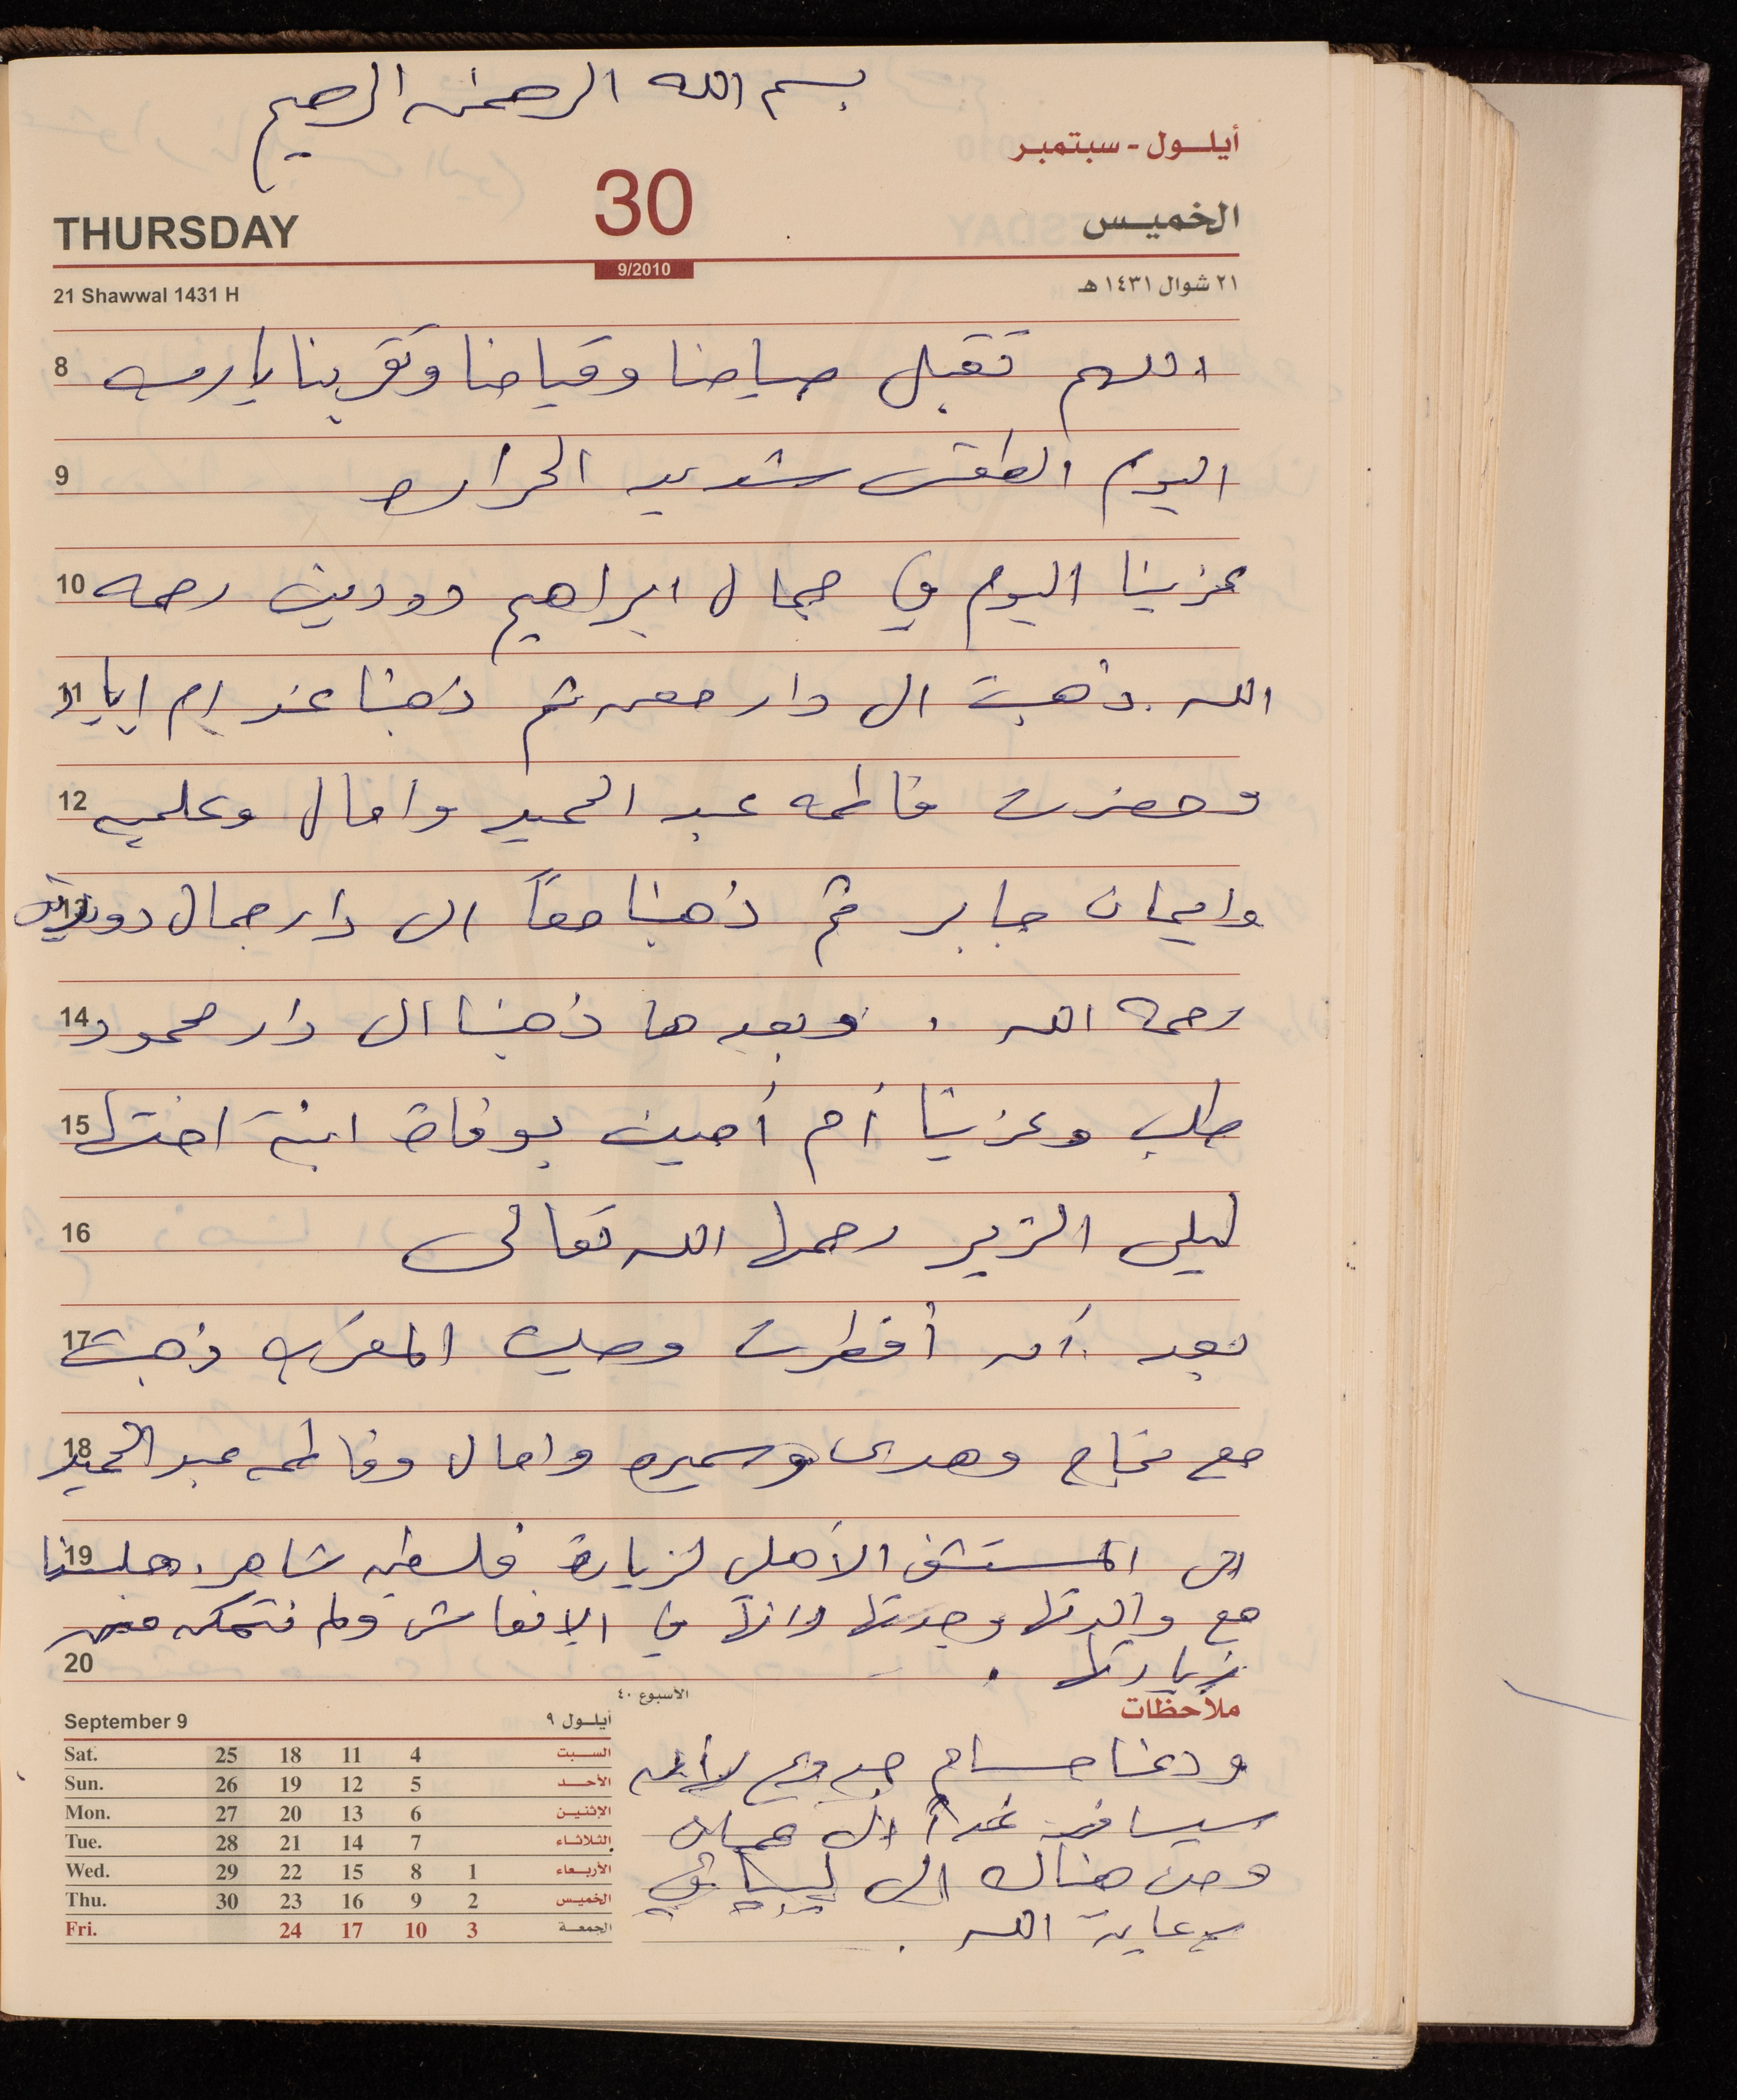 بسم الله الرحمن الرحيم
أيلول - سبتمبر
THURSDAY 30 الخميس
9/2010
21 Shawwal 1431 H ٢١ شوال ١٤٣١ هـ
8 اللهم تقبل صيامنا وقيامنا وتقربنا يا رب
9 اليوم الطقس شديد الحراره
10 عزينا اليوم في جمال ابراهيم دودين رحمه
11 الله . ذهبت الى دار ثم ذهبنا عند ام اياد
12 وحضرت فاطمه عبد الحميد وامال وعلميه
13 وايمان جابر ثم ذهبنا معاً الى دار جمال دودين
14 رحمه الله . وبعدها ذهبنا الى دار محمود
15 طلب وعزينا أم أمين بوفاة ابنة اختها
16 ليلى الزير رحمها الله تعالى
17 بعد أن أفطرت وصليت المغرب ذهبت
18 مع نجاح وهدى وسميره وامال وفاطمه عبد الحميد
19 الى المستشفى الأهلي لزيارة فلسطين شاهر . جلسنا
مع والدتها وجدتها وانها في الانعاش ولم نتمكن من
20 زيارتها .
ملاحظات
ودعنا حسام لأنه
سيسافر غداً الى عمان
ومن هناك الى ليبيا في
رعاية الله .
الأسبوع ٤٠
September 9 أيلول ٩
Sat. 25 18 11 4 السبت
Sun. 26 19 12 5 الأحد
Mon. 27 20 13 6 الإثنين
Tue. 28 21 14 7 الثلاثاء
Wed. 29 22 15 8 1 الأربعاء
Thu. 30 23 16 9 2 الخميس
Fri. 24 17 10 3 الجمعة